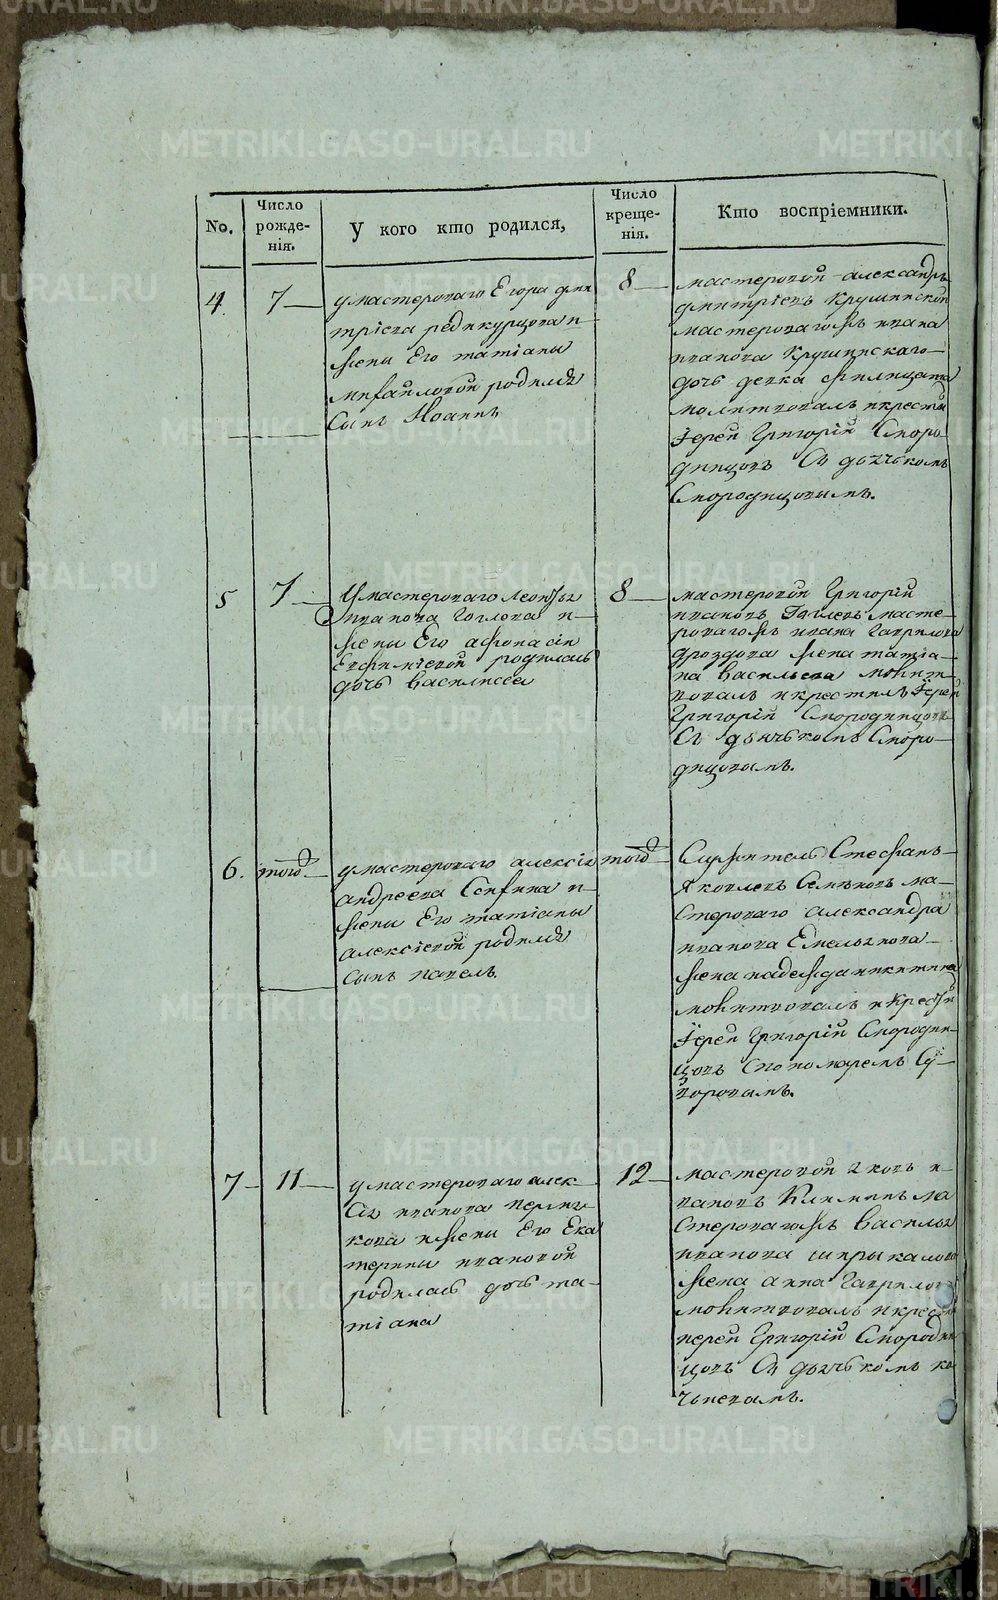 METRIKI.GASO-URAL.RU
No.
Число рожде-нія.
У кого кто родился,
Число креще-нія.
Кто воспріемники.
4
7
у мастероваго Егора дми
тріева
жены Его татіаны
михайловой родился
Сынъ Иоаннъ
8
мастеровой александръ
дмитріевъ Крушинской
мастероваго ивана
иванова Крушинскаго
дочь девка филицата
молитвовалъ и крестил
Іерей Григорій Сморо-
динцовъ Съ дьячькомъ
Смородинцовымъ.
5
7
У мастероваго
иванова Гоглева и
жены Его афонасіи
Евфиміевой родилась
дочь Василисса
8
мастеровой Григорій
ивановъ масте-
роваго ивана гаврилова
дроздова жена татіа-
на Васильева молит
вовалъ и крестилъ Іерей
Григорій Смородинцовъ
Съ дьячькомъ Сморо-
динцовымъ.
6.
того
у мастероваго алексія
андреева и
жены Его татіаны
алексіевой родился
сынъ павелъ
того
Служитель Стефанъ
Яковлевъ ма-
стероваго александра
иванова Емельянова
жена надежда никитина
молитвовалъ и Крестил
Іерей Григорій Смородин-
цовъ Съ пономаремъ Су-
воровымъ.
7
11
у мастероваго алек-
сія иванова
кова и жены Его Ека
терины ивановой
родилась дочь та-
тіана
12
мастеровой яковъ и-
вановъ Климинъ ма
стероваго Василья
иванова шпрыкалова
жена анна гаврилова
молитвовалъ и крестил
иерей Григорій Смородин
цовъ Съ дьячькомъ ко
чьневымъ.